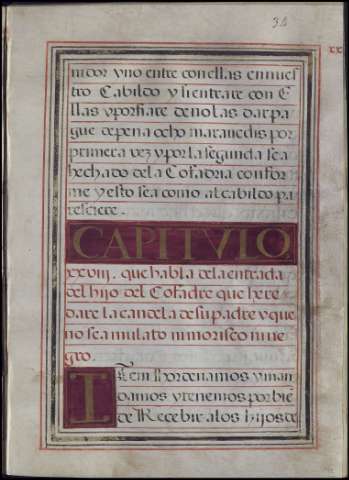 34
xx
ni dor vno entre con ellas en nues
tro Cabildo y si entrare con E
llas y porfiare de no las dar pa
gue de pena ocho maravedis por
primera vez y por la segunda sea
hechado de la Cofadria confor
me y esto sea como al cabildo pa
resciere.
CAPITVLO
xxviii. que habla de la entrada
del hijo del Cofadre que here
dare la candela de su padre y que
no sea mulato ni morisco ni ne
gro.
Item Hordenamos y man
damos y tenemos por bie
de Recebir a los hijos de